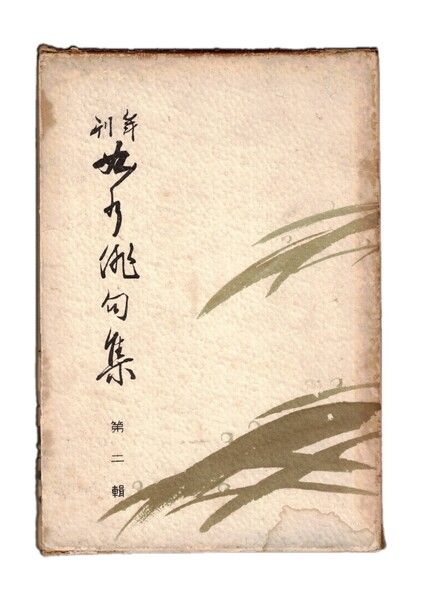 年刊
俳句集
第二輯